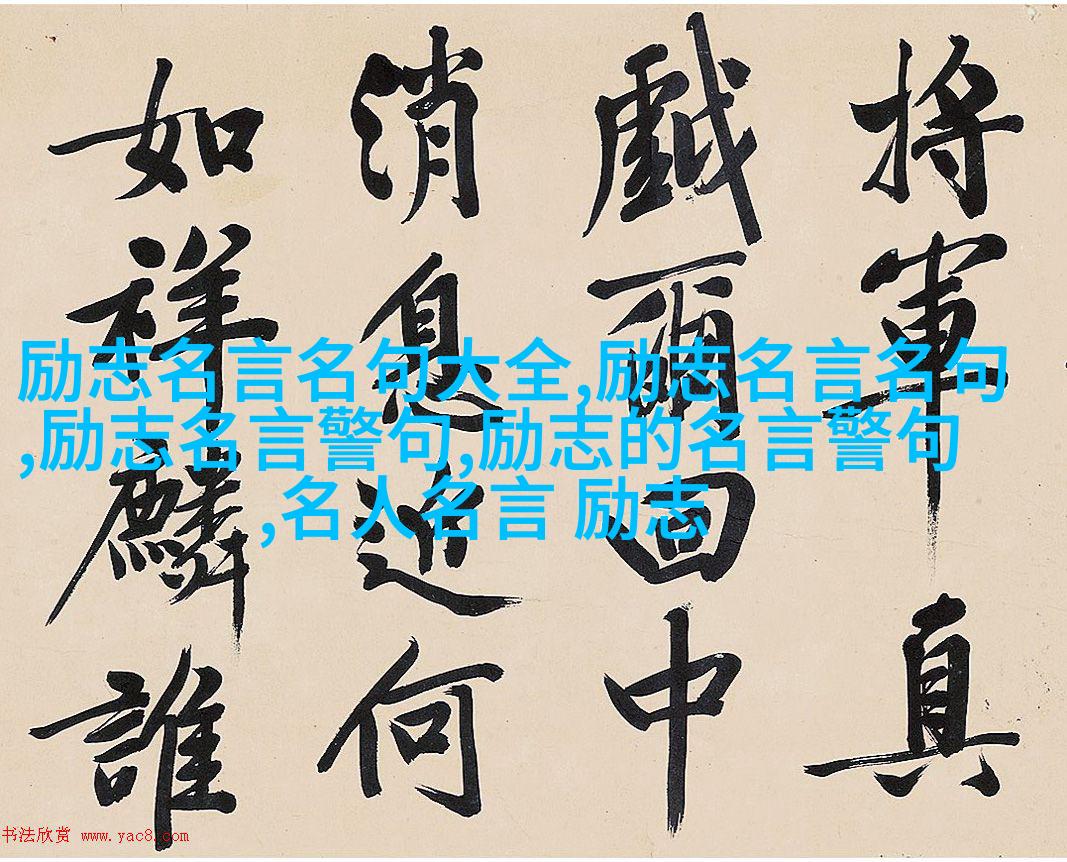 将軍真
戲爾回中
消息近何
如祥麟誰
励志名言名句大全,励志名言名句
,励志名言警句,励志的名言警句
,名人名言 励志
书法欣赏 www.yac8.com